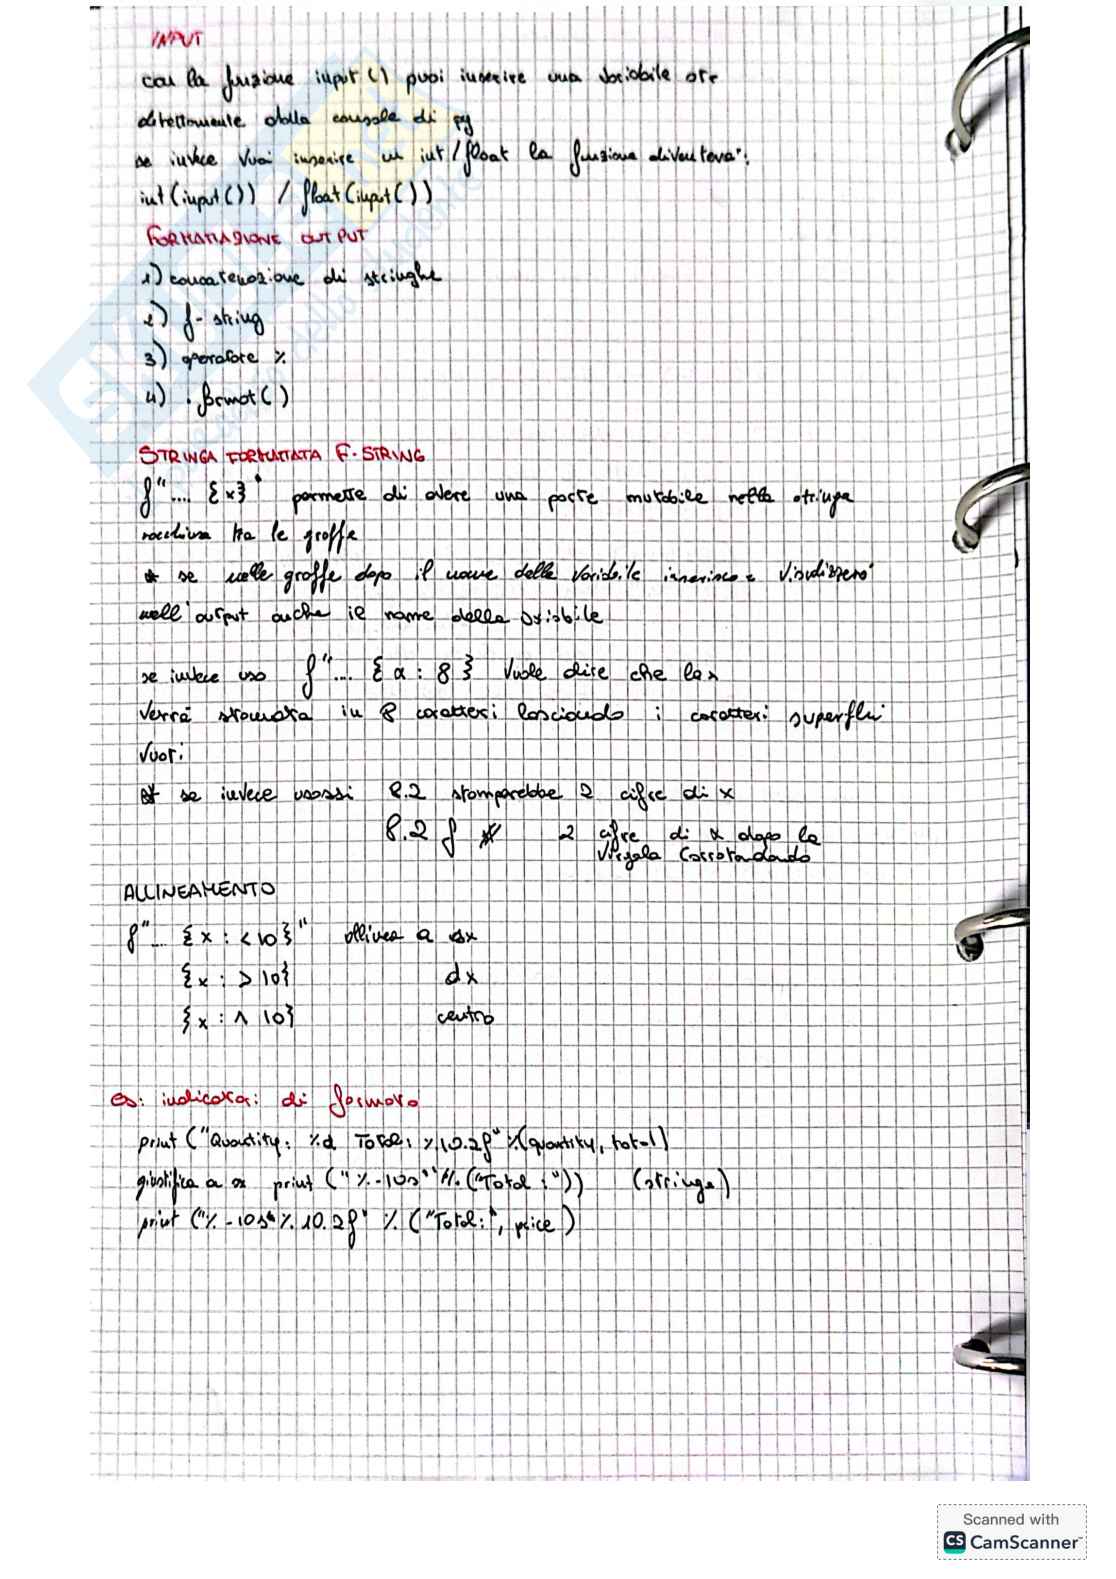 INPUT
con la funzione input() puoi inserire una variabile str
direttamente dalla console di py
se invece vuoi inserire un int/float la funzione diventerà:
int(input()) / float(input())
FORMATTAZIONE OUTPUT
1) concatenazione di stringhe
2) f-string
3) operatore %
4) .format()
STRINGA FORMATTATA F-STRING
f".... {x}" permette di avere una parte mutabile nella stringa
racchiusa tra le graffe
* se nelle graffe dopo il nome della variabile inserisco = visualizzerò
nell'output anche il nome della variabile
se invece uso f"... {x : 8} vuole dire che la x
verrà stampata in 8 caratteri lasciando i caratteri superflui
vuoti
* se invece usassi 8.2 stamperebbe 2 cifre di x
8.2 f 2 cifre di x dopo la
virgola (arrotondando
ALLINEAMENTO
f"... {x : <10}" allinea a sx
{x : >10} dx
{x : ^ 10} centro
es: indicatori di formato
print ("Quantity: %d Total: %10.2f" %(quantity, total)
giustifica a sx print ("%-10s" %("Total:")) (stringa)
print ("%-10s%10.2f" % ("Total:", price)
Scanned with
CS CamScanner